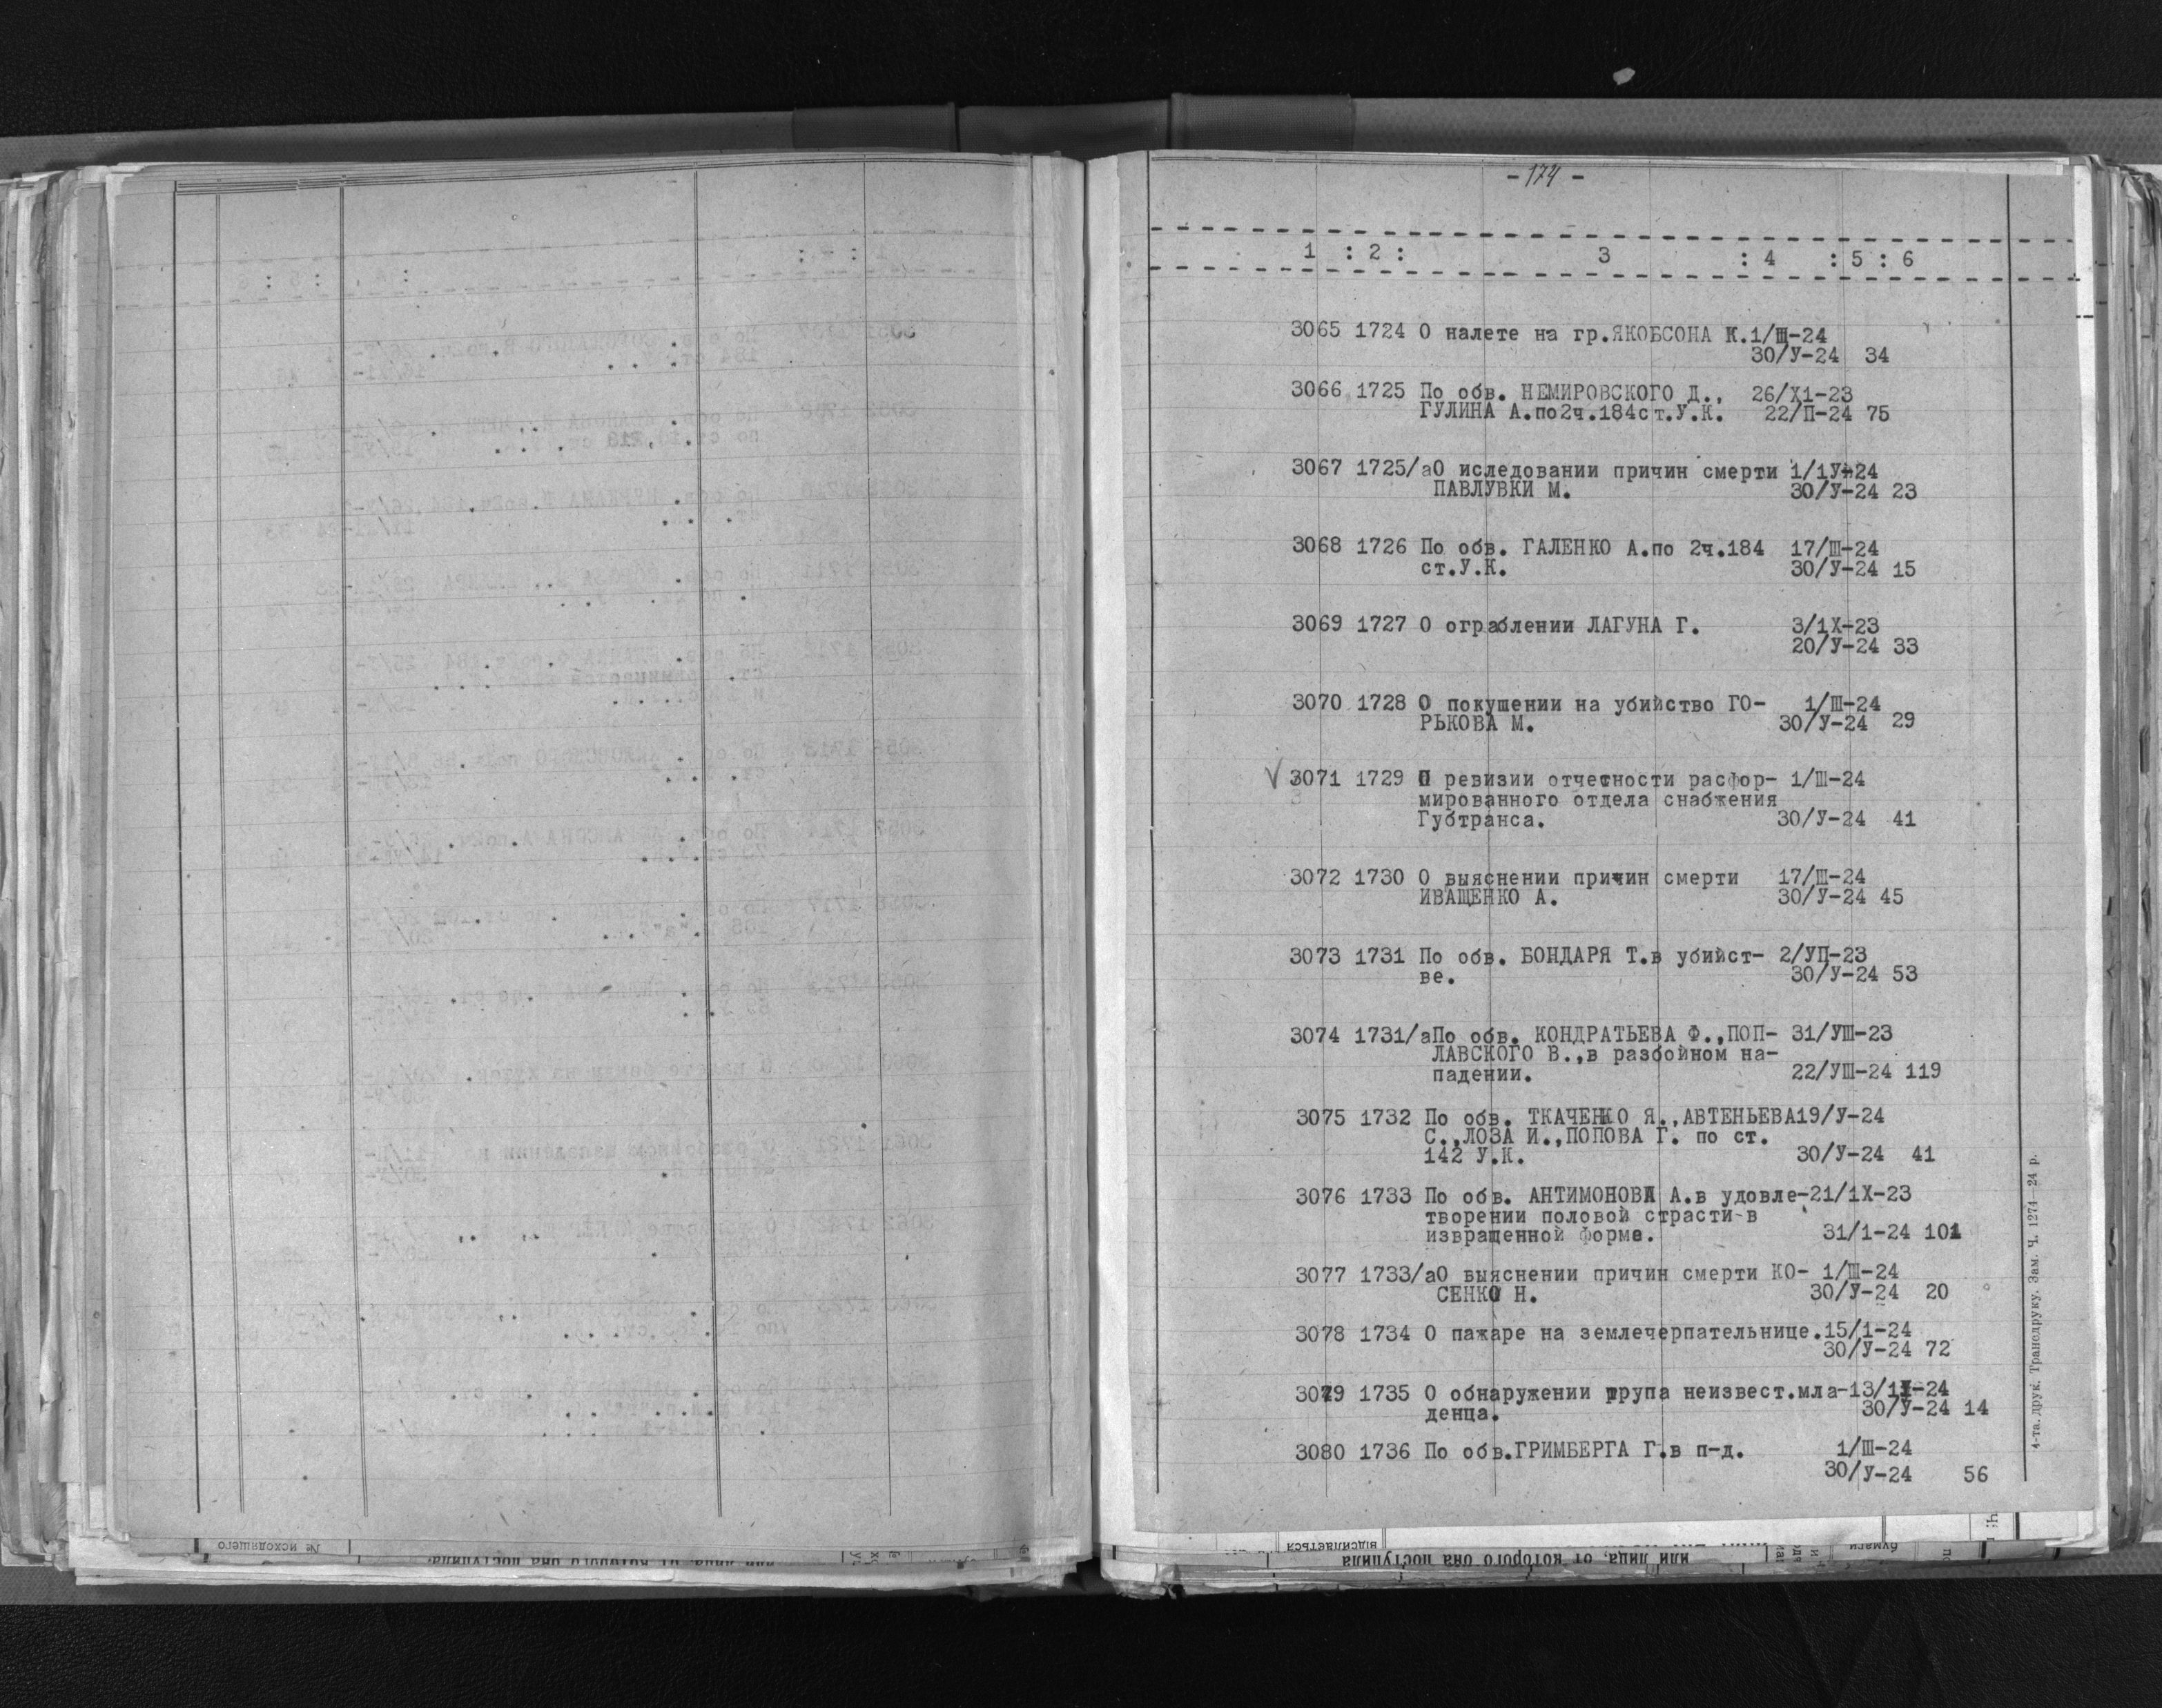 - 174 -
1 : 2 : 3 : 4 : 5 : 6
3065 1724 О налете на гр.ЯКОБСОНА К.1/Ш-24
30/У-24 34
3066 1725 По обв. НЕМИРОВСКОГО Д., 26/Х1-23
ГУЛИНА А.по2ч.184ст.У.К. 22/П-24 75
3067 1725/аО иследовании причин смерти 1/1У-24
ПАВЛУВКИ М. 30/У-24 23
3068 1726 По обв. ГАЛЕНКО А.по 2ч.184 17/Ш-24
ст.У.К. 30/У-24 15
3069 1727 О ограблении ЛАГУНА Г. 3/1Х-23
20/У-24 33
3070 1728 О покушении на убийство ГО- 1/Ш-24
РЬКОВА М. 30/У-24 29
V 3071 1729 О ревизии отчетности расфор- 1/Ш-24
мированного отдела снабжения
Губтранса. 30/У-24 41
3072 1730 О выяснении причин смерти 17/Ш-24
ИВАЩЕНКО А. 30/У-24 45
3073 1731 По обв. БОНДАРЯ Т.в убийст- 2/УП-23
ве. 30/У-24 53
3074 1731/аПо обв. КОНДРАТЬЕВА Ф.,ПОП- 31/УШ-23
ЛАВСКОГО В.,в разбойном на-
падении. 22/УШ-24 119
3075 1732 По обв. ТКАЧЕНКО Я.,АВТЕНЬЕВА19/У-24
С.,ЛОЗА И.,ПОПОВА Г. по ст.
142 У.К. 30/У-24 41
3076 1733 По обв. АНТИМОНОВА А.в удовле-21/1Х-23
творении половой страсти в
извращенной форме. 31/1-24 101
3077 1733/аО выяснении причин смерти КО- 1/Ш-24
СЕНКО Н. 30/У-24 20
3078 1734 О пажаре на землечерпательнице.15/1-24
30/У-24 72
3079 1735 О обнаружении трупа неизвест.мла-13/1У-24
денца. 30/У-24 14
3080 1736 По обв.ГРИМБЕРГА Г.в п-д. 1/Ш-24
30/У-24 56
4-та. друк. Трансдруку. Зам. Ч. 1274—24 р.
№ исходящего
или лица, от которого она поступила
відсилається
или лица, от которого она поступила
бумаги